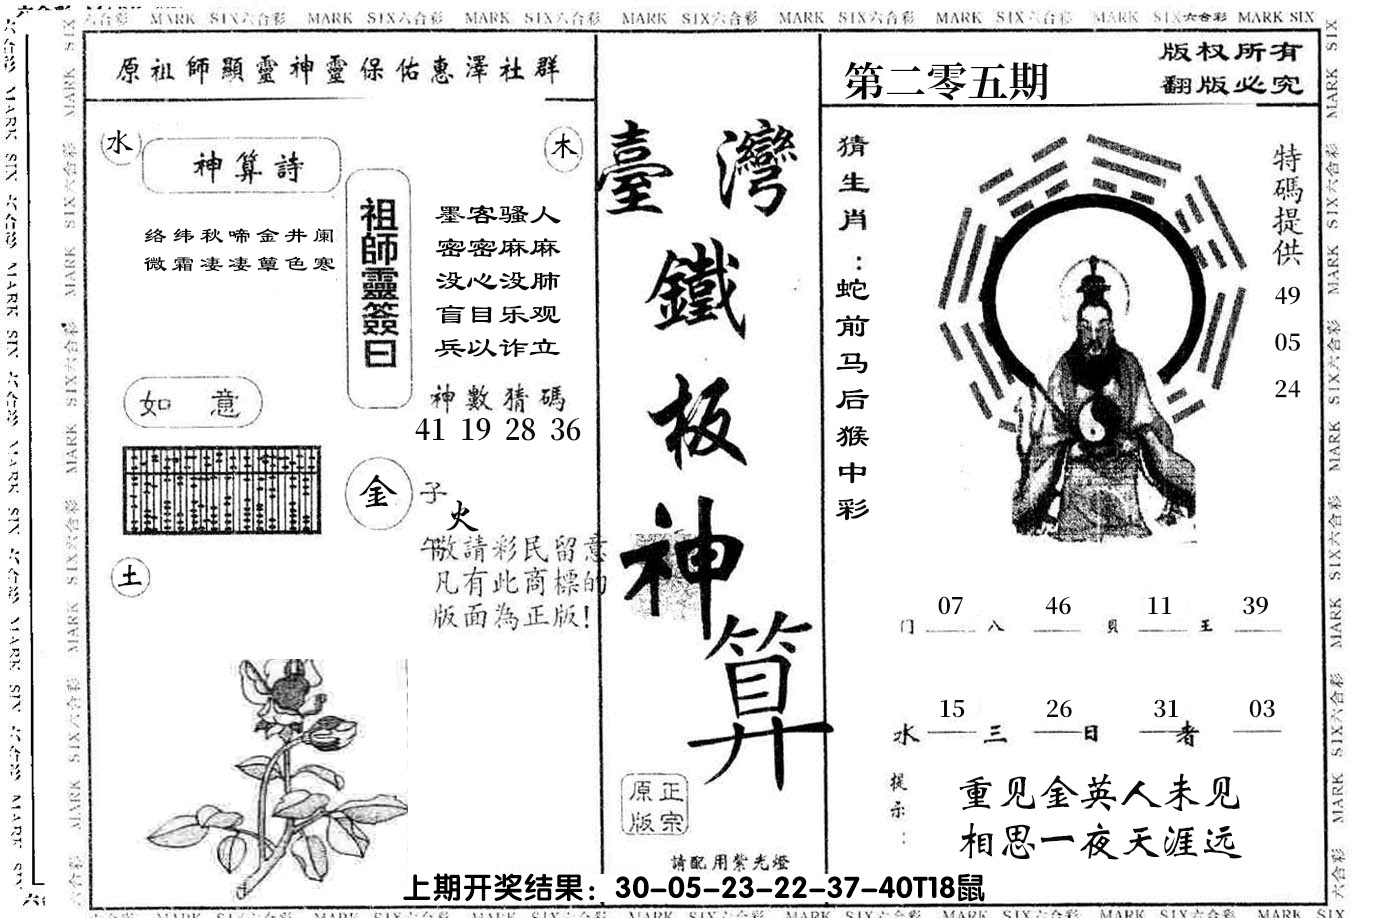 六合彩 MARK SIX六合彩 MARK SIX六合彩 MARK SIX六合彩 MARK SIX六合彩 MARK SIX六合彩 MARK SIX六合彩 MARK SIX六合彩 MARK SIX
原祖師顯靈神靈保佑惠澤社群
第二零五期
版权所有
翻版必究
水
神算詩
木
络纬秋啼金井阑
微霜凄凄簟色寒
祖師靈簽曰
墨客骚人
密密麻麻
没心没肺
盲目乐观
兵以诈立
神數猜碼
41 19 28 36
如 意
金
子
火
午
敬請彩民留意
凡有此商標的
版面為正版!
土
臺灣
鐵
板
神
算
正宗
原版
請配用紫光燈
猜生肖:蛇前马后猴中彩
特碼提供
49
05
24
07 46 11 39
门 八 貝 王
15 26 31 03
水 三 日 者
提示:
重见金英人未见
相思一夜天涯远
上期开奖结果：30-05-23-22-37-40T18鼠